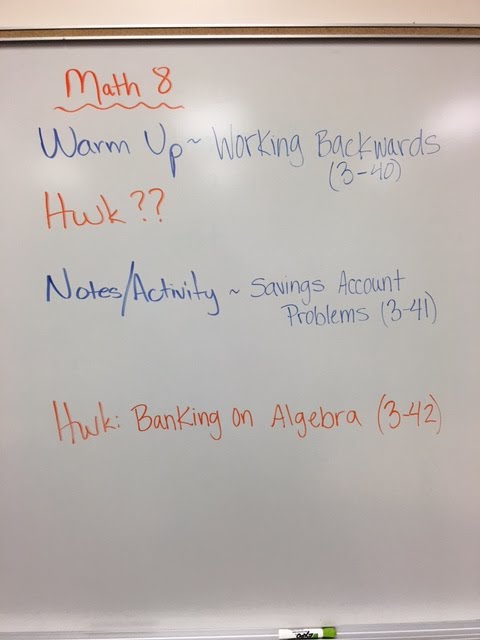 Math 8
Warm Up ~ Working Backwards
(3-40)
Hwk ??
Notes/Activity ~ Savings Account
Problems (3-41)
Hwk: Banking on Algebra (3-42)
EXPO